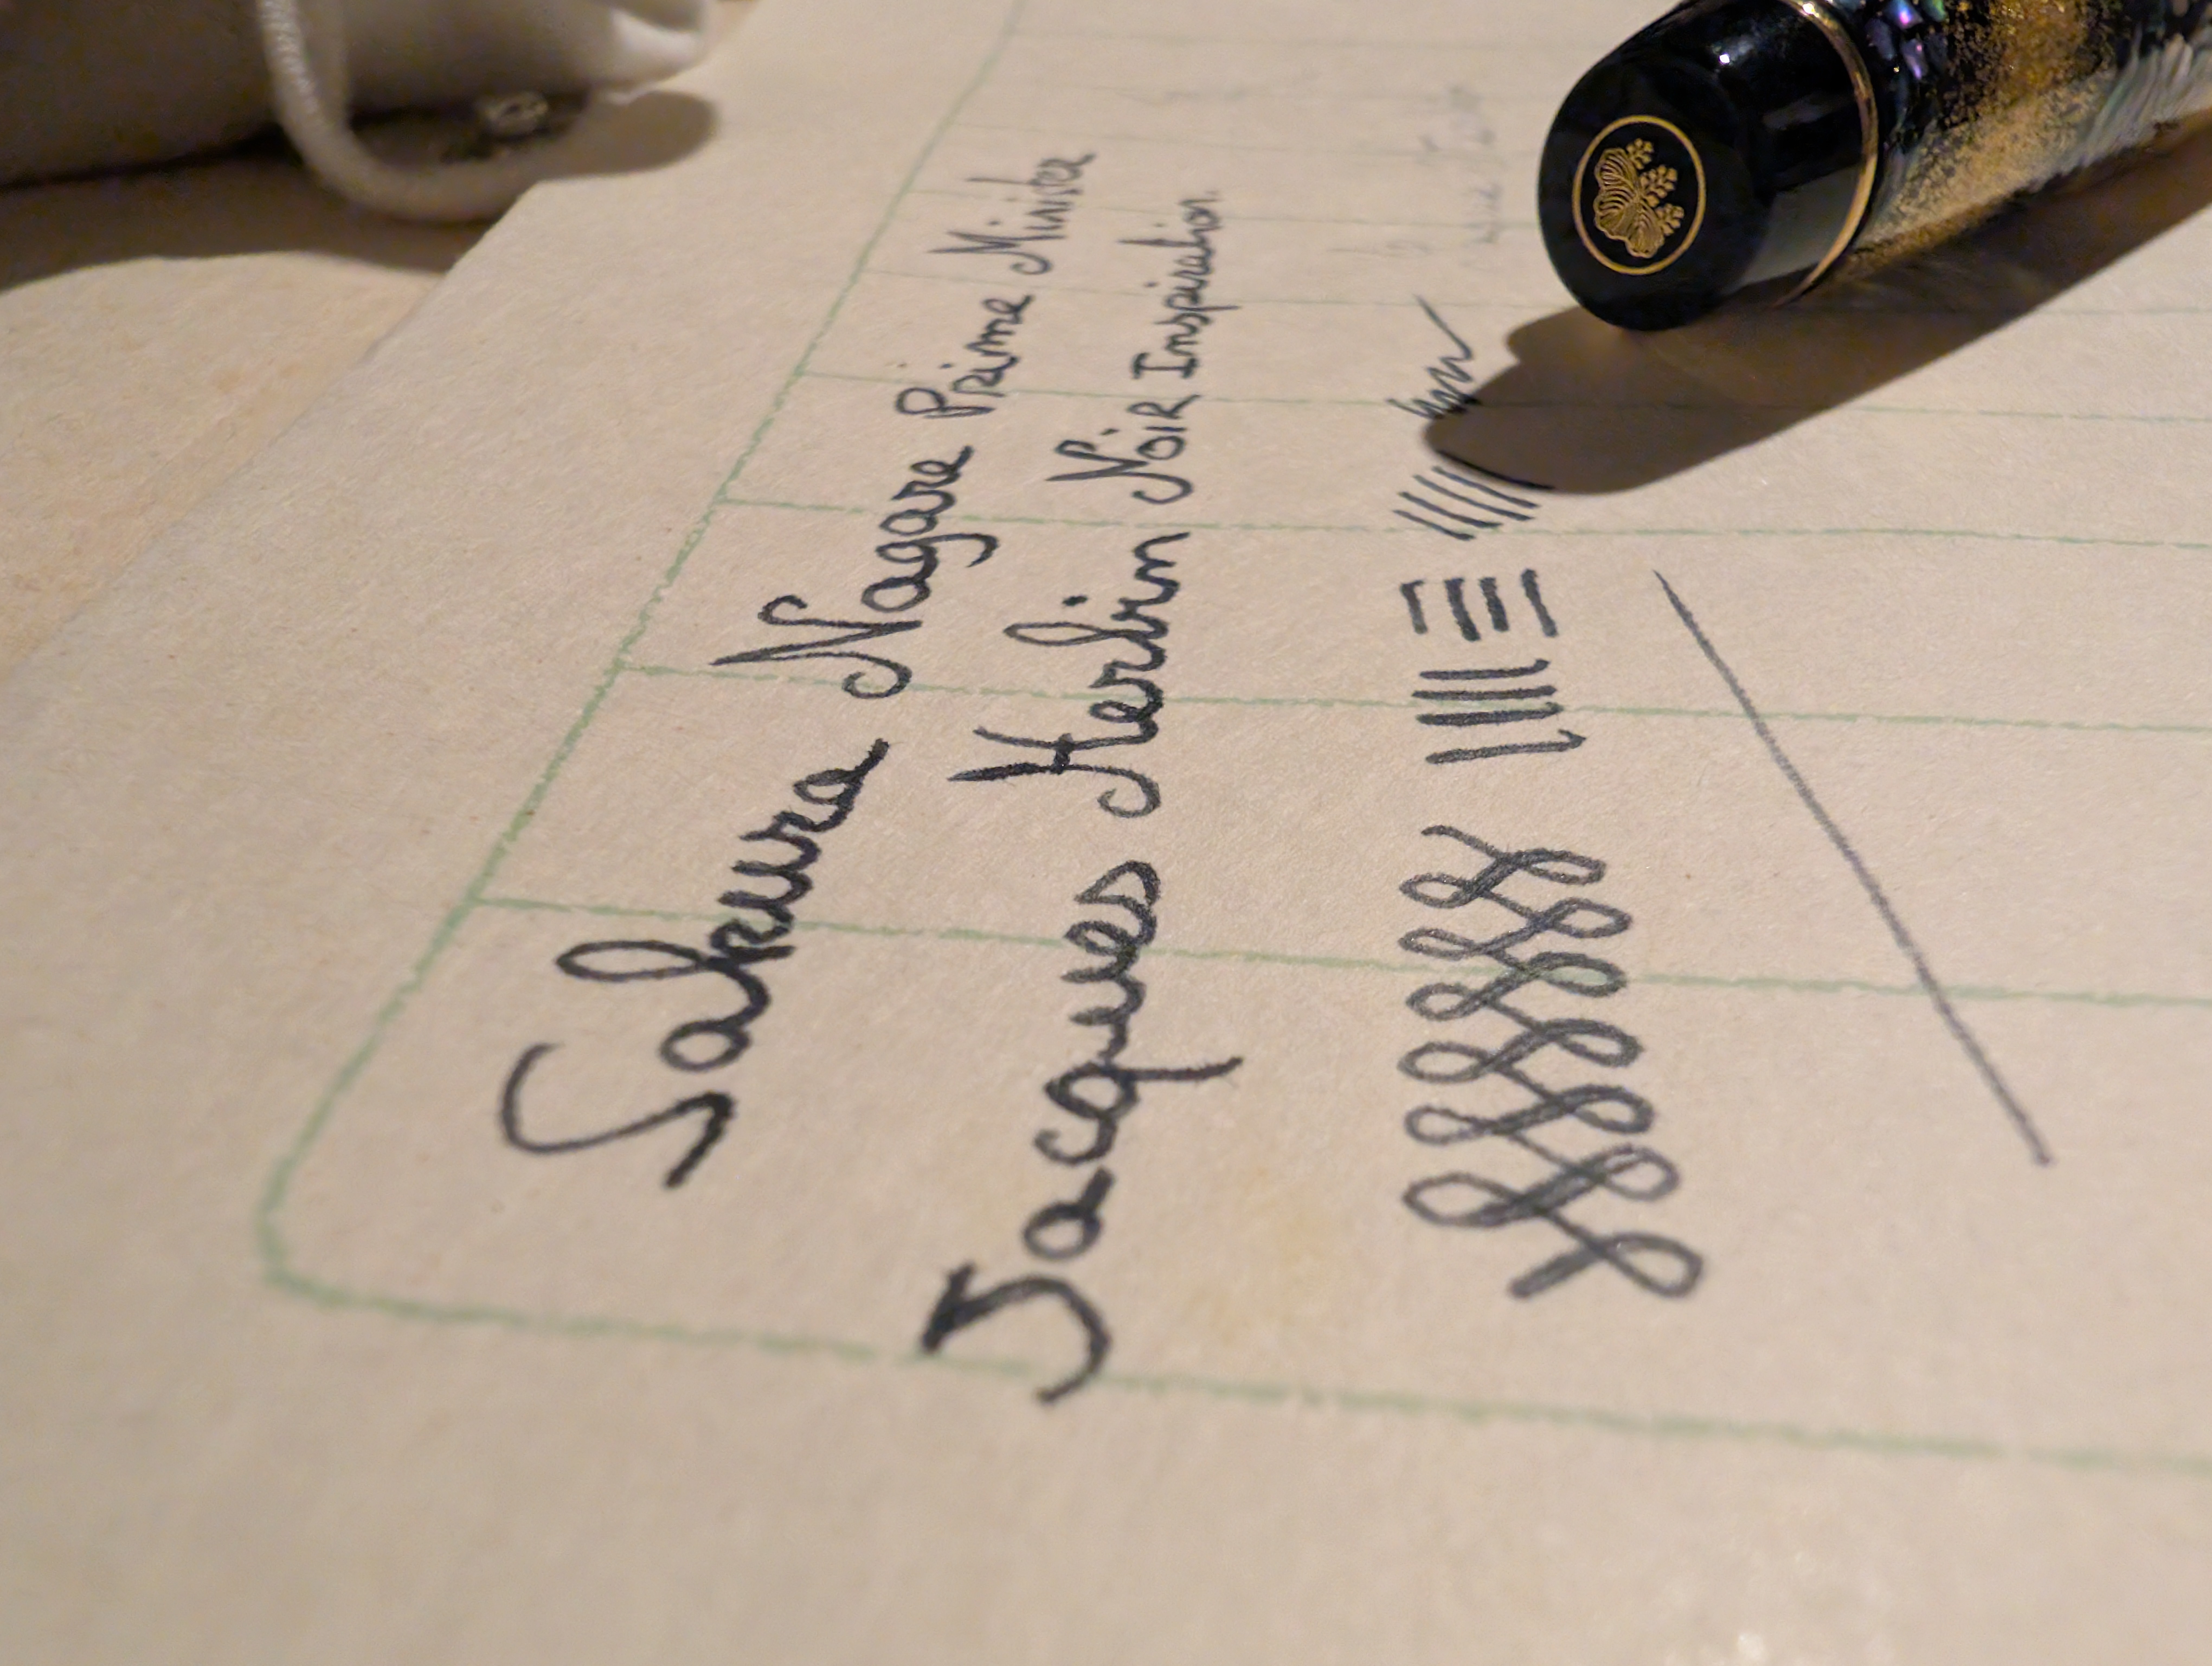 Sakura Nagare Prime Minister
Jacques Herbin Noir Inspiration.